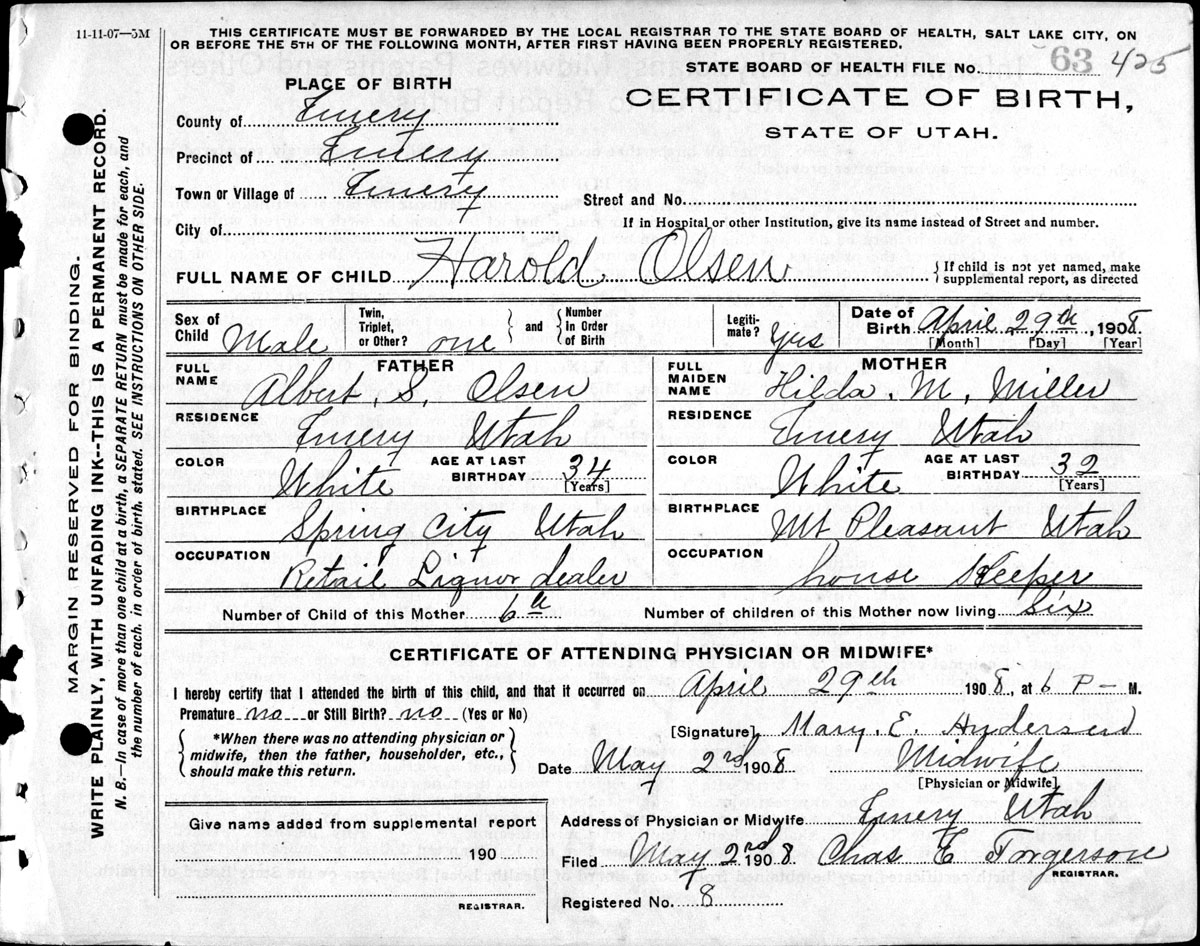 11-11-07—5M
THIS CERTIFICATE MUST BE FORWARDED BY THE LOCAL REGISTRAR TO THE STATE BOARD OF HEALTH, SALT LAKE CITY, ON
OR BEFORE THE 5TH OF THE FOLLOWING MONTH, AFTER FIRST HAVING BEEN PROPERLY REGISTERED.
STATE BOARD OF HEALTH FILE NO. 63 425
PLACE OF BIRTH
CERTIFICATE OF BIRTH,
STATE OF UTAH.
County of Emery
Precinct of Emery
Town or Village of Emery Street and No.
City of If in Hospital or other Institution, give its name instead of Street and number.
FULL NAME OF CHILD Harold Olsen { If child is not yet named, make supplemental report, as directed
Sex of Child Male Twin, Triplet, or Other? one } and { Number In Order of Birth Legiti-mate? Yes Date of Birth April 29th, 1908
[Month] [Day] [Year]
FATHER MOTHER
FULL NAME Albert. S. Olsen FULL MAIDEN NAME Hilda. M. Miller
RESIDENCE Emery Utah RESIDENCE Emery Utah
COLOR White AGE AT LAST BIRTHDAY 34 [Years] COLOR White AGE AT LAST BIRTHDAY 32 [Years]
BIRTHPLACE Spring City Utah BIRTHPLACE Mt Pleasant Utah
OCCUPATION Retail Liquor dealer OCCUPATION house Keeper
Number of Child of this Mother 6th Number of children of this Mother now living Six
CERTIFICATE OF ATTENDING PHYSICIAN OR MIDWIFE*
I hereby certify that I attended the birth of this child, and that it occurred on April 29th 1908, at 6 P — M.
Premature no or Still Birth? no (Yes or No)
{ *When there was no attending physician or midwife, then the father, householder, etc., should make this return. }
[Signature] Mary. E. Andersen
Date May 2nd 1908 Midwife
[Physician or Midwife]
Give name added from supplemental report
190
REGISTRAR.
Address of Physician or Midwife Emery Utah
Filed May 2nd 1908 Chas E Torgerson
REGISTRAR.
Registered No. 8
MARGIN RESERVED FOR BINDING.
WRITE PLAINLY, WITH UNFADING INK--THIS IS A PERMANENT RECORD.
N. B.—In case of more than one child at a birth, a SEPARATE RETURN must be made for each, and
the number of each, in order of birth, stated. SEE INSTRUCTIONS ON OTHER SIDE.